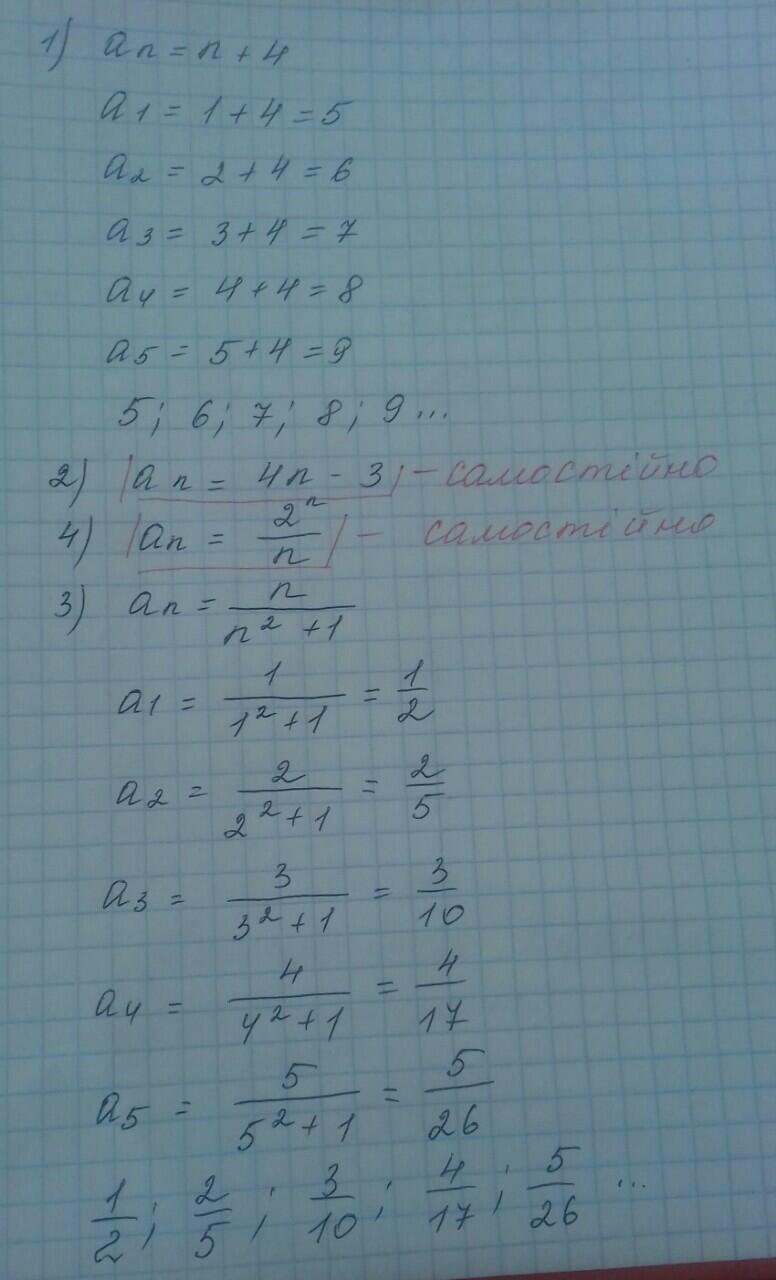 1) aₙ = n + 4
a₁ = 1 + 4 = 5
a₂ = 2 + 4 = 6
a₃ = 3 + 4 = 7
a₄ = 4 + 4 = 8
a₅ = 5 + 4 = 9
5; 6; 7; 8; 9 ...
2) |aₙ = 4n - 3| - самостійно
4) |aₙ = 2ⁿ/n| - самостійно
3) aₙ = n/(n² + 1)
a₁ = 1/(1² + 1) = 1/2
a₂ = 2/(2² + 1) = 2/5
a₃ = 3/(3² + 1) = 3/10
a₄ = 4/(4² + 1) = 4/17
a₅ = 5/(5² + 1) = 5/26
1/2; 2/5; 3/10; 4/17; 5/26 ...